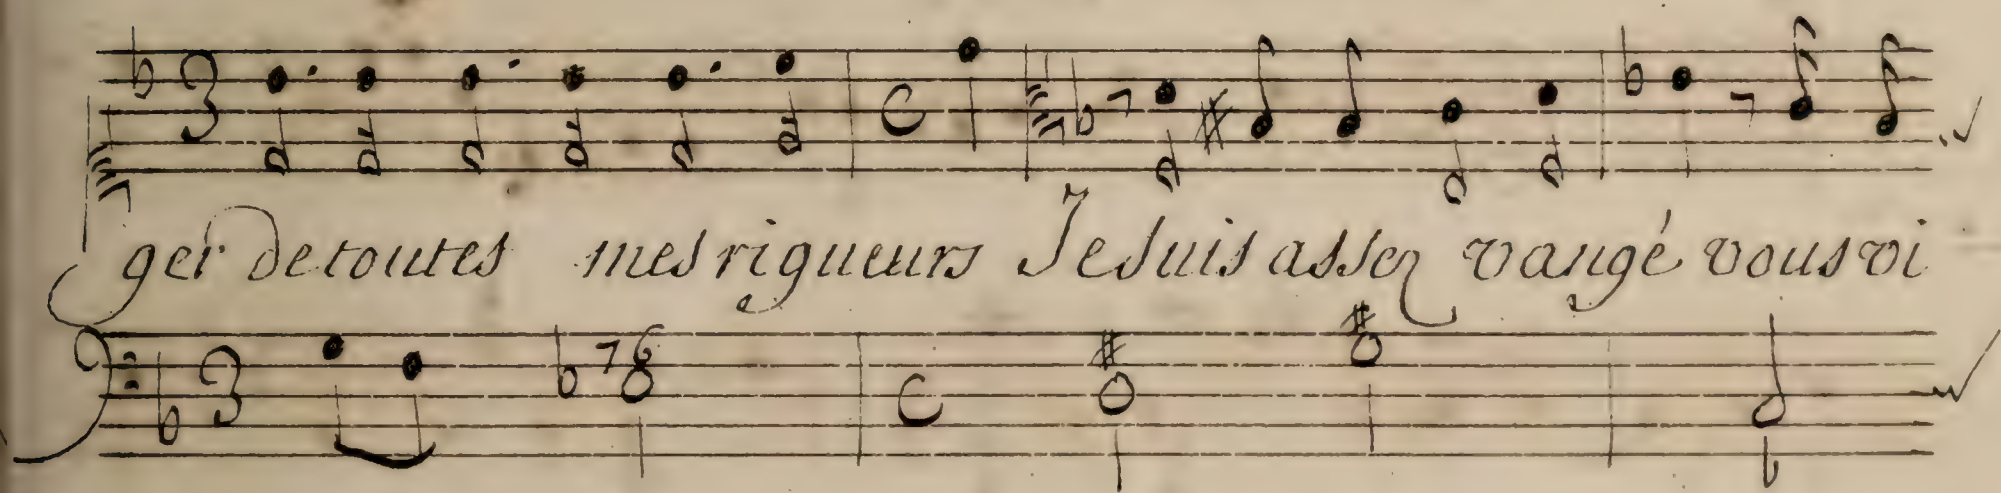 ger de toutes mes rigueurs Je suis assez vangé vous vi